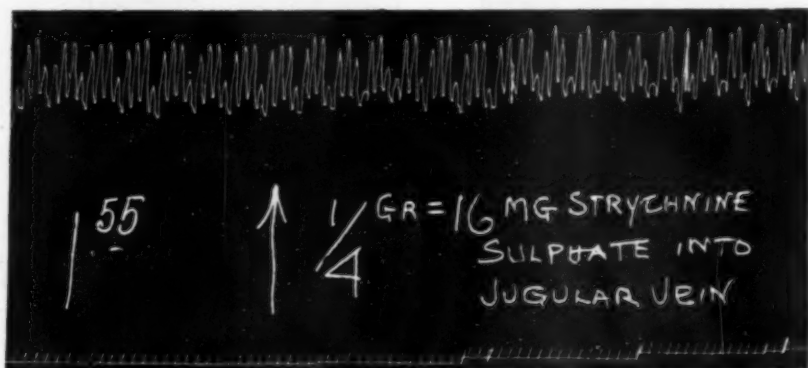 1 55
↑ 1/4 GR = 16 MG STRYCHNINE
SULPHATE INTO
JUGULAR VEIN